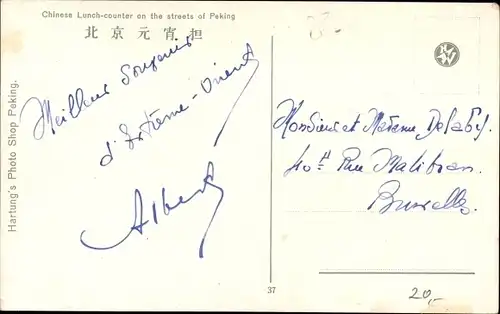 Chinese Lunch-counter on the streets of Peking
北京元宵担
Meilleurs Souvenirs
d'Extrême-Orient
Albert
Hartung's Photo Shop Peking.
Monsieur et Madame Delaby
40 Rue Malibran
Bruxelles.
37
20,-